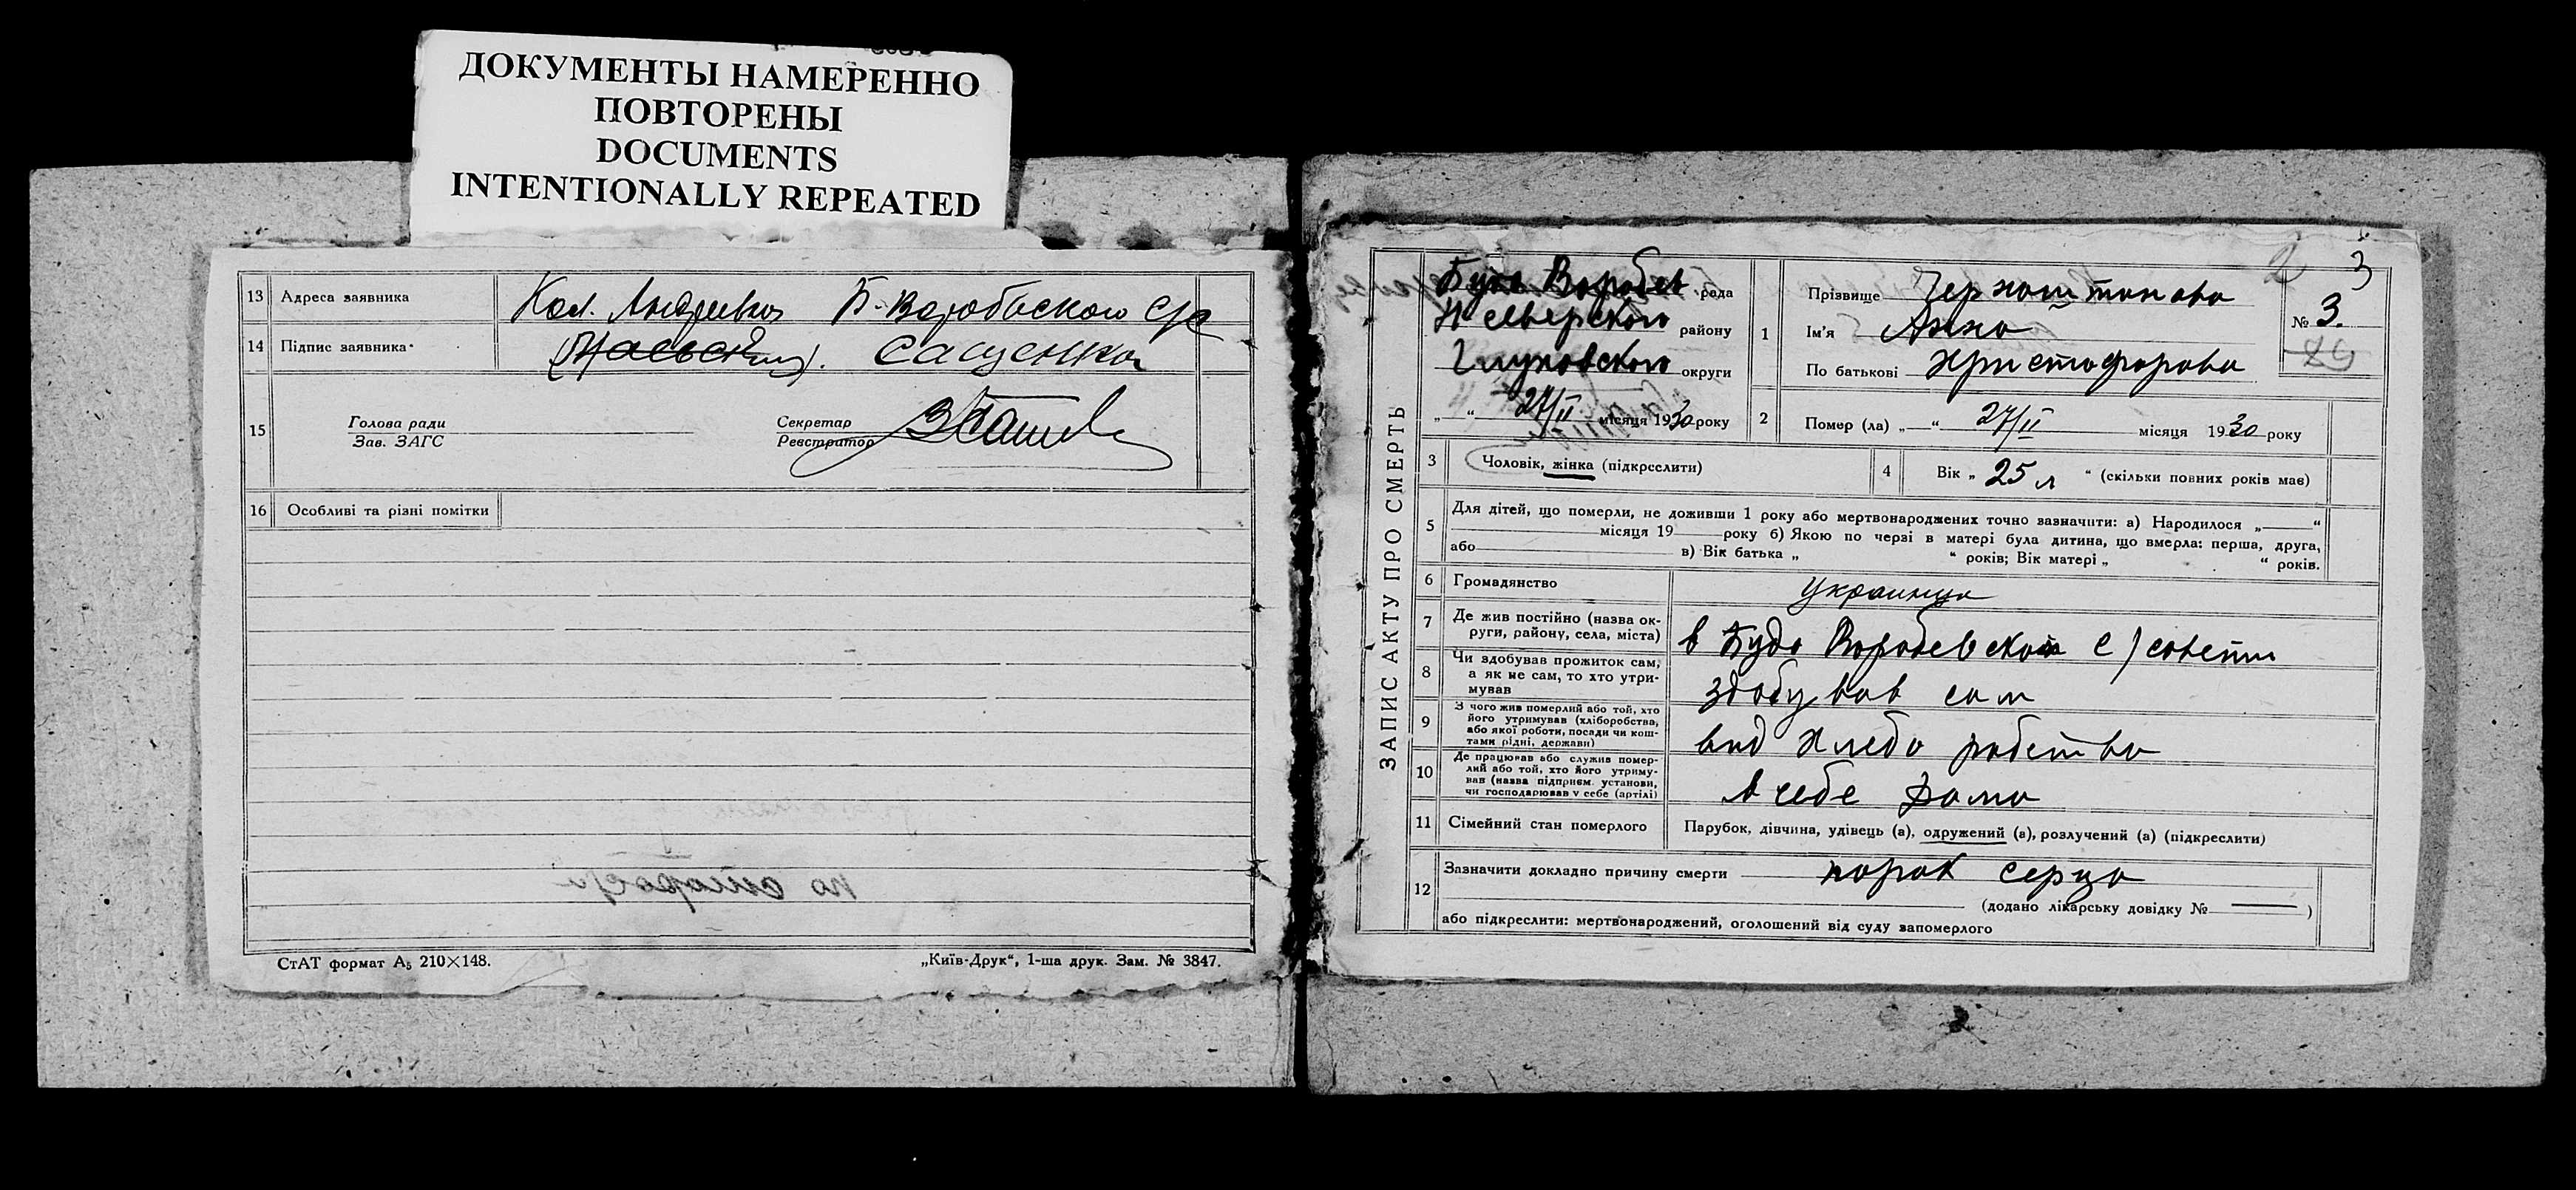 ДОКУМЕНТЫ НАМЕРЕННО
ПОВТОРЕНЫ
DOCUMENTS
INTENTIONALLY REPEATED
13 Адреса заявника Кол. Андреевка Б-Воробьского С/с
14 Підпис заявника Сащенко
15 Голова ради
Зав. ЗАГС
Секретар
Реєстратор
16 Особливі та різні помітки
СтАТ формат А5 210×148.
„Київ-Друк“, 1-ша друк. Зам. № 3847.
ЗАПИС АКТУ ПРО СМЕРТЬ
Буда Воробьев рада
Н северского району
Глуховского округи
„ “ 27/II місяця 1930 року
2 3
№ 3.
1 Прізвище
Ім'я Анна
По батькові Христофорова
2 Помер (ла) „ “ 27/II місяця 1930 року
3 Чоловік, жінка (підкреслити)
4 Вік „ 25 л “ (скільки повних років має)
5 Для дітей, що померли, не доживши 1 року або мертвонароджених точно зазначити: а) Народилося „ “
місяця 19 року б) Якою по черзі в матері була дитина, що вмерла: перша, друга,
або в) Вік батька „ “ років; Вік матері „ “ років.
6 Громадянство украинца
7 Де жив постійно (назва ок-
руги, району, села, міста)
в Буда Воробевской с/совети
8 Чи здобував прожиток сам,
а як не сам, то хто утри-
мував
здобував сам
9 З чого жив померлий або той, хто
його утримував (хліборобства,
або якої роботи, посади чи кош-
тами рідні, держави)
вид хлебо робства
10 Де працював або служив помер-
лий або той, хто його утриму-
вав (назва підприєм. установи,
чи господарював у себе (артілі)
в себе дома
11 Сімейний стан померлого Парубок, дівчина, удівець (а), одружений (а), розлучений (а) (підкреслити)
12 Зазначити докладно причину смерти порок серца
(додано лікарську довідку № )
або підкреслити: мертвонароджений, оголошений від суду запомерлого